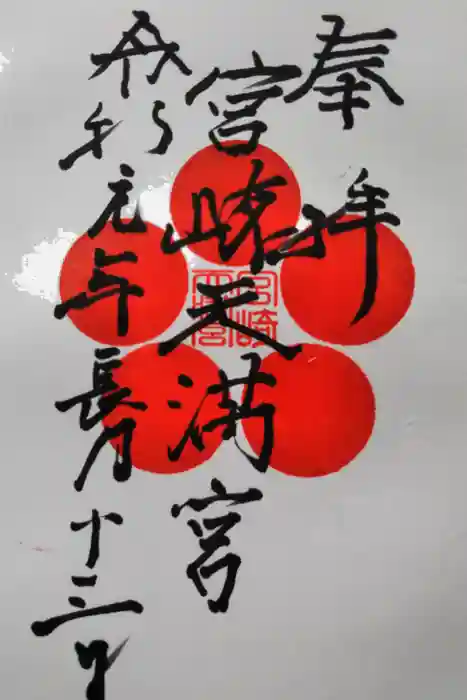 奉拝
宮崎天満宮
令和元年長月十三日
宮崎
天満宮